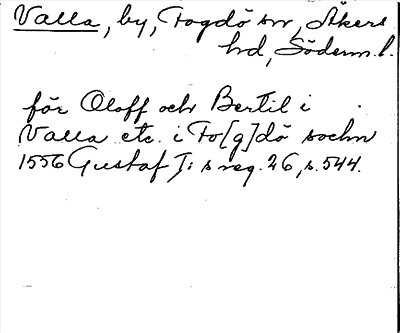 Valla, by, Fogdö sn, Åkers
hd, Söderm. l.
för Oloff och Bertil i
Valla etc. i Fo[g]dö sochn
1556 Gustaf I:s reg. 26, s. 544.